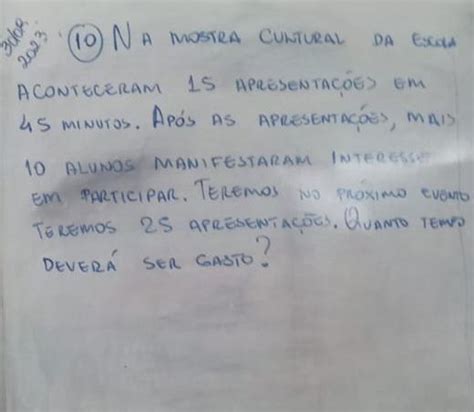 30/08
2023.
10 NA MOSTRA CUNTURAL DA ESCOLA
ACONTECERAM 15 APRESENTAÇÕES EM
45 MINUTOS. APÓS AS APRESENTAÇÕES, MAIS
10 ALUNOS MANIFESTARAM INTERESSE
EM PARTICIPAR. TEREMOS NO PRÓXIMO EVENTO
TEREMOS 25 APRESENTAÇÕES. QUANTO TEMPO
DEVERÁ SER GASTO?